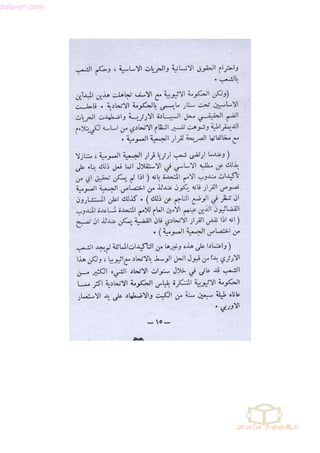 zula-eri.com
واحترام الحقوق الانسانية والحريات الاساسية ، وحكم الشعب
بالشعب .
(ولكن الحكومة الاثيوبية مع الاسف تجاهلت هذين المبدأين
الاساسيين تحت ستار مايسمى بالحكومة الاتحادية . فأحلت
الضم الحقيقي محل السيادة الارترية واضطهدت الحريات
الديمقراطية وشوهت تفسير النظام الاتحادي من اساسه لكي يتلاءم
مع مخالفاتها الصريحة لقرار الجمعية العمومية .
( وعندما ارتضى شعب ارتريا قرار الجمعية العمومية ، متنازلا
بذلك عن مطلبه الاساسي في الاستقلال انما فعل ذلك بناء على
تأكيدات مندوب الامم المتحدة بانه ( اذا لم يمكن تحقيق اي من
نصوص القرار فانه يكون عندئذ من اختصاص الجمعية العمومية
ان تنظر في الوضع الناجم عن ذلك ) . كذلك اعلن المستشارون
القضائيون الذين عينهم الامين العام للامم المتحدة لمساعدة المندوب
( انه اذا نقض القرار الاتحادي فان القضية يمكن عندئذ ان تصبح
من اختصاص الجمعية العمومية ) .
( واعتمادا على هذه وغيرها من التأكيدات المماثلة لم يجد الشعب
الارتري بدأ من قبول الحل الوسط بالاتحاد مع اثيوبيا ، ولكن هذا
الشعب قد عانى في خلال سنوات الاتحاد الشيء الكثير من
الحكومة الاثيوبية المتنكرة بلباس الحكومة الاتحادية اكثر مما
عاناه طيلة سبعين سنة من الكبت والاضطهاد على يد الاستعمار
الاوربي .
— ١٥ —
zula books